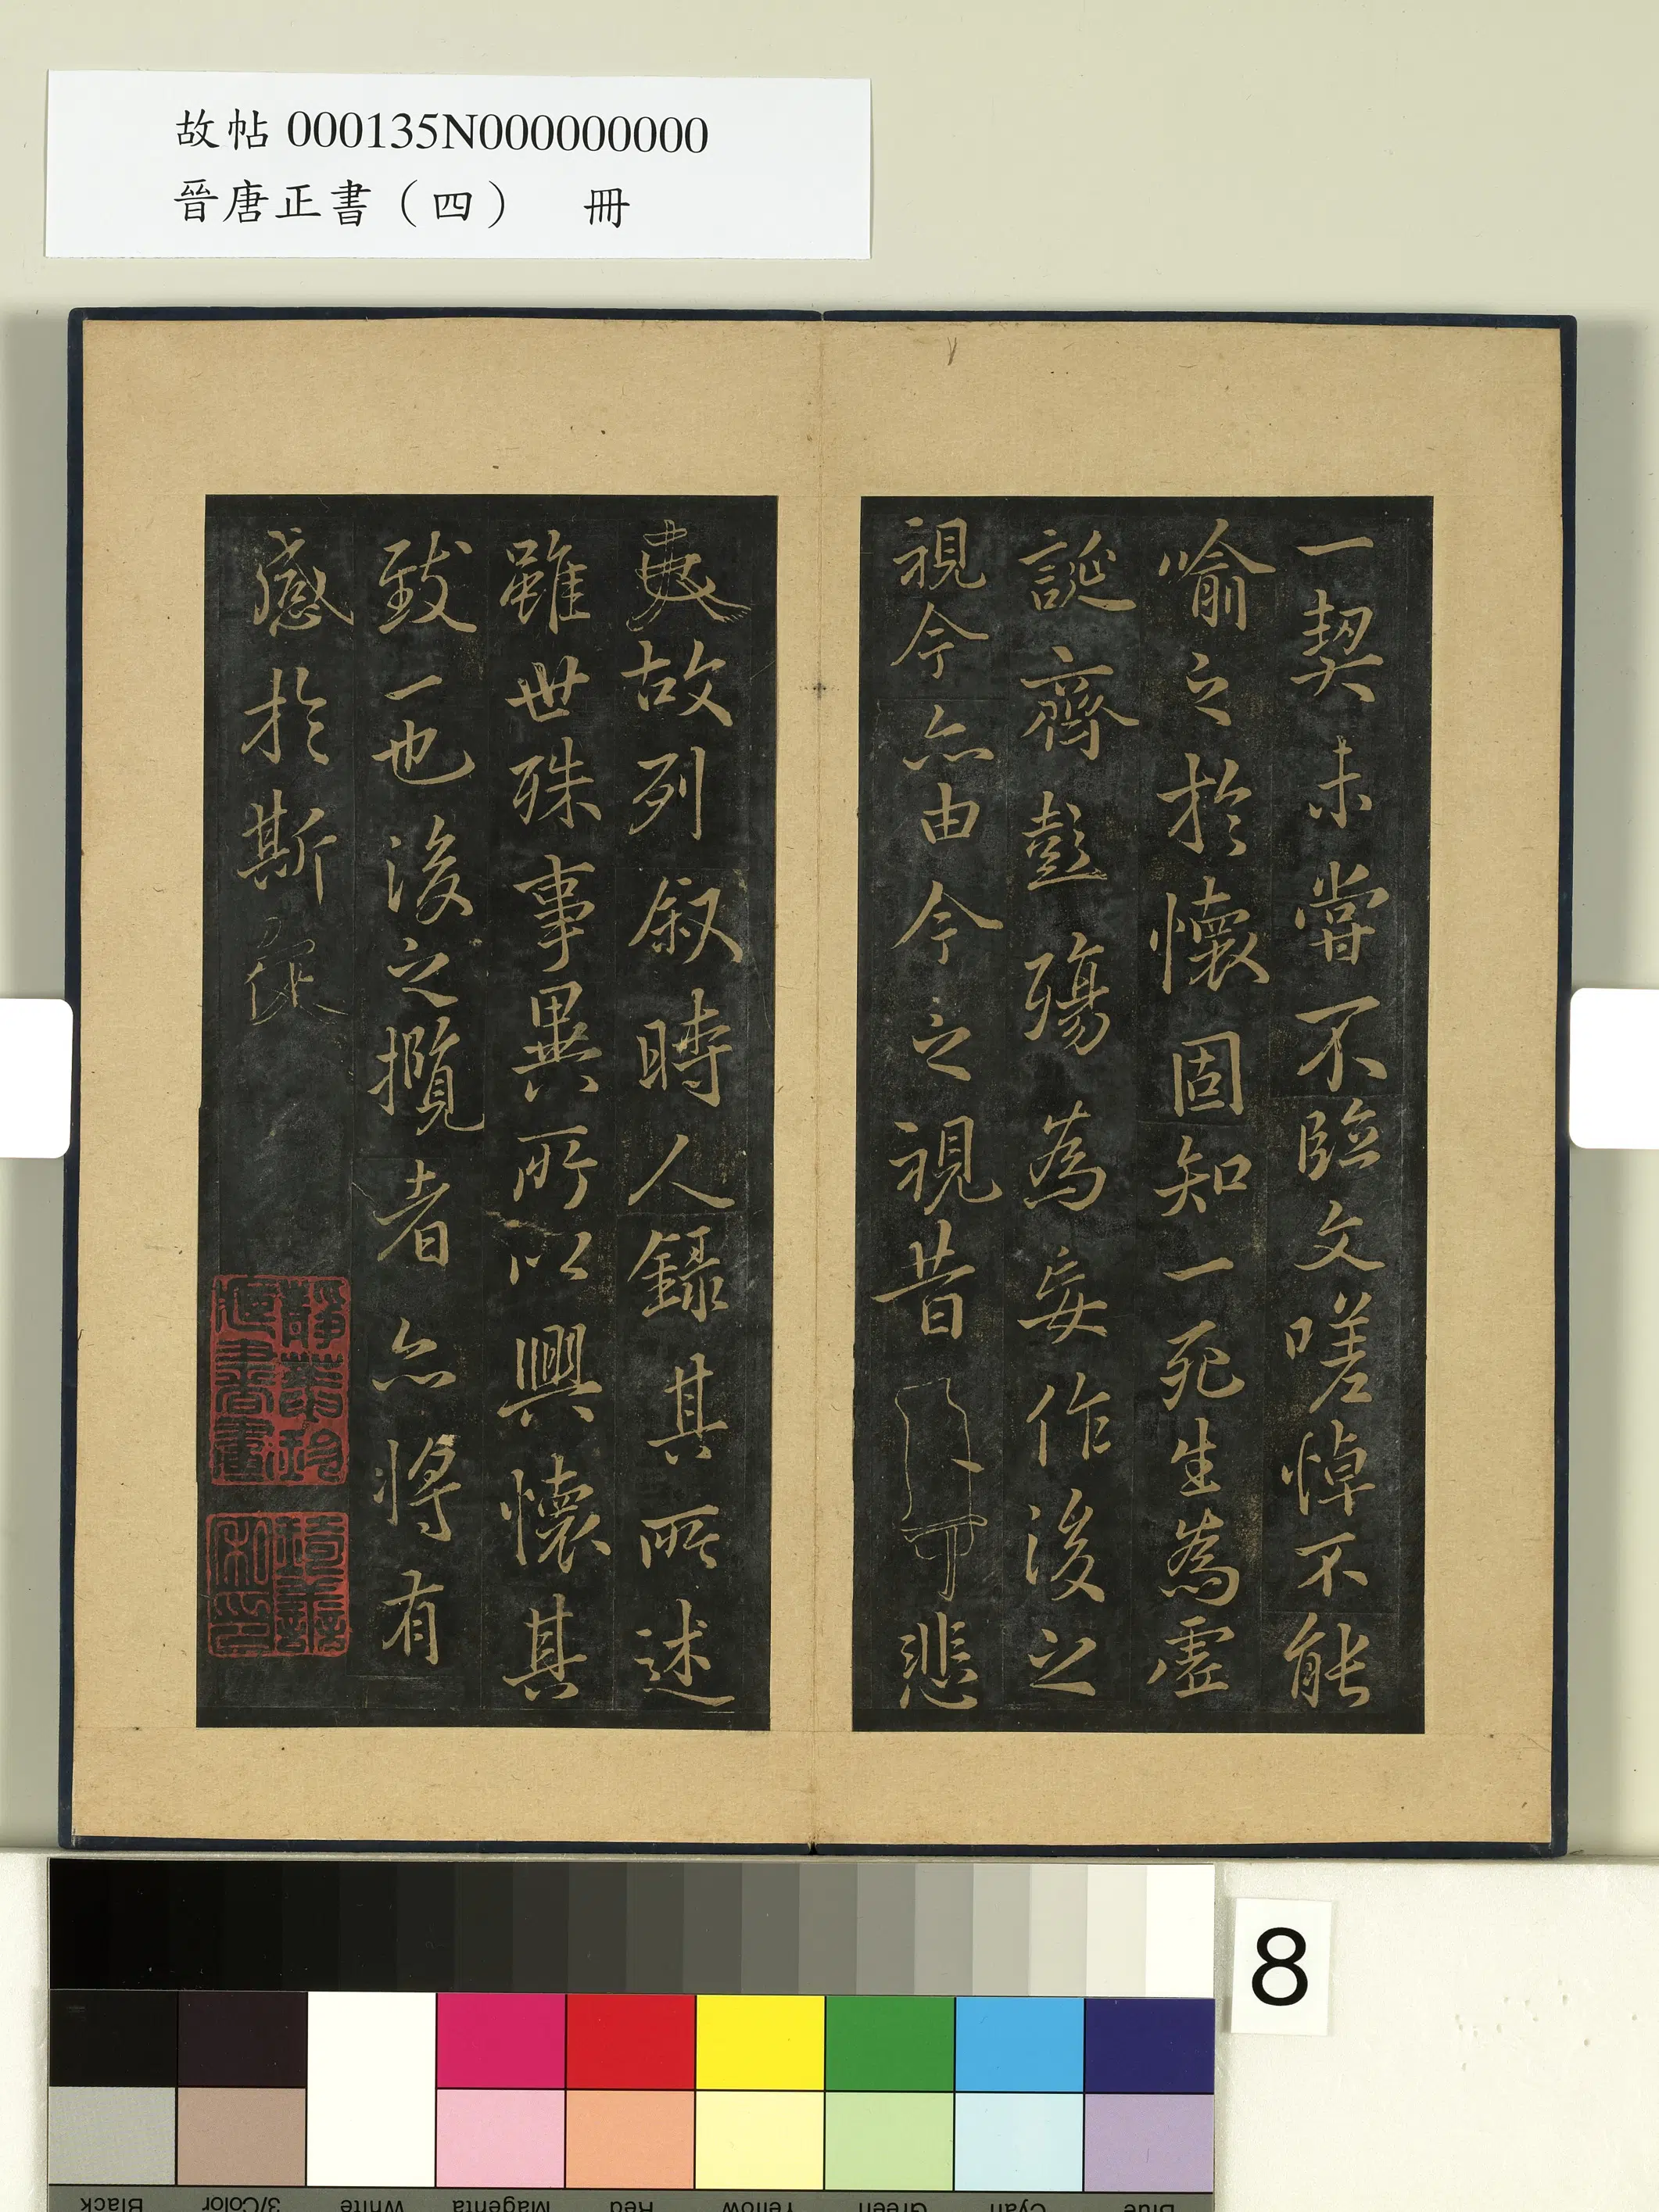 故帖 000135N000000000
晉唐正書（四） 冊
一契未嘗不臨文嗟悼不能
喻之於懷固知一死生為虛
誕齊彭殤為妄作後之
視今亦由今之視昔悲
夫故列叙時人錄其所述
雖世殊事異所以興懷其
致一也後之攬者亦將有
感於斯文
8
Black 3/Color White Magenta Red Yellow Green Cyan Blue